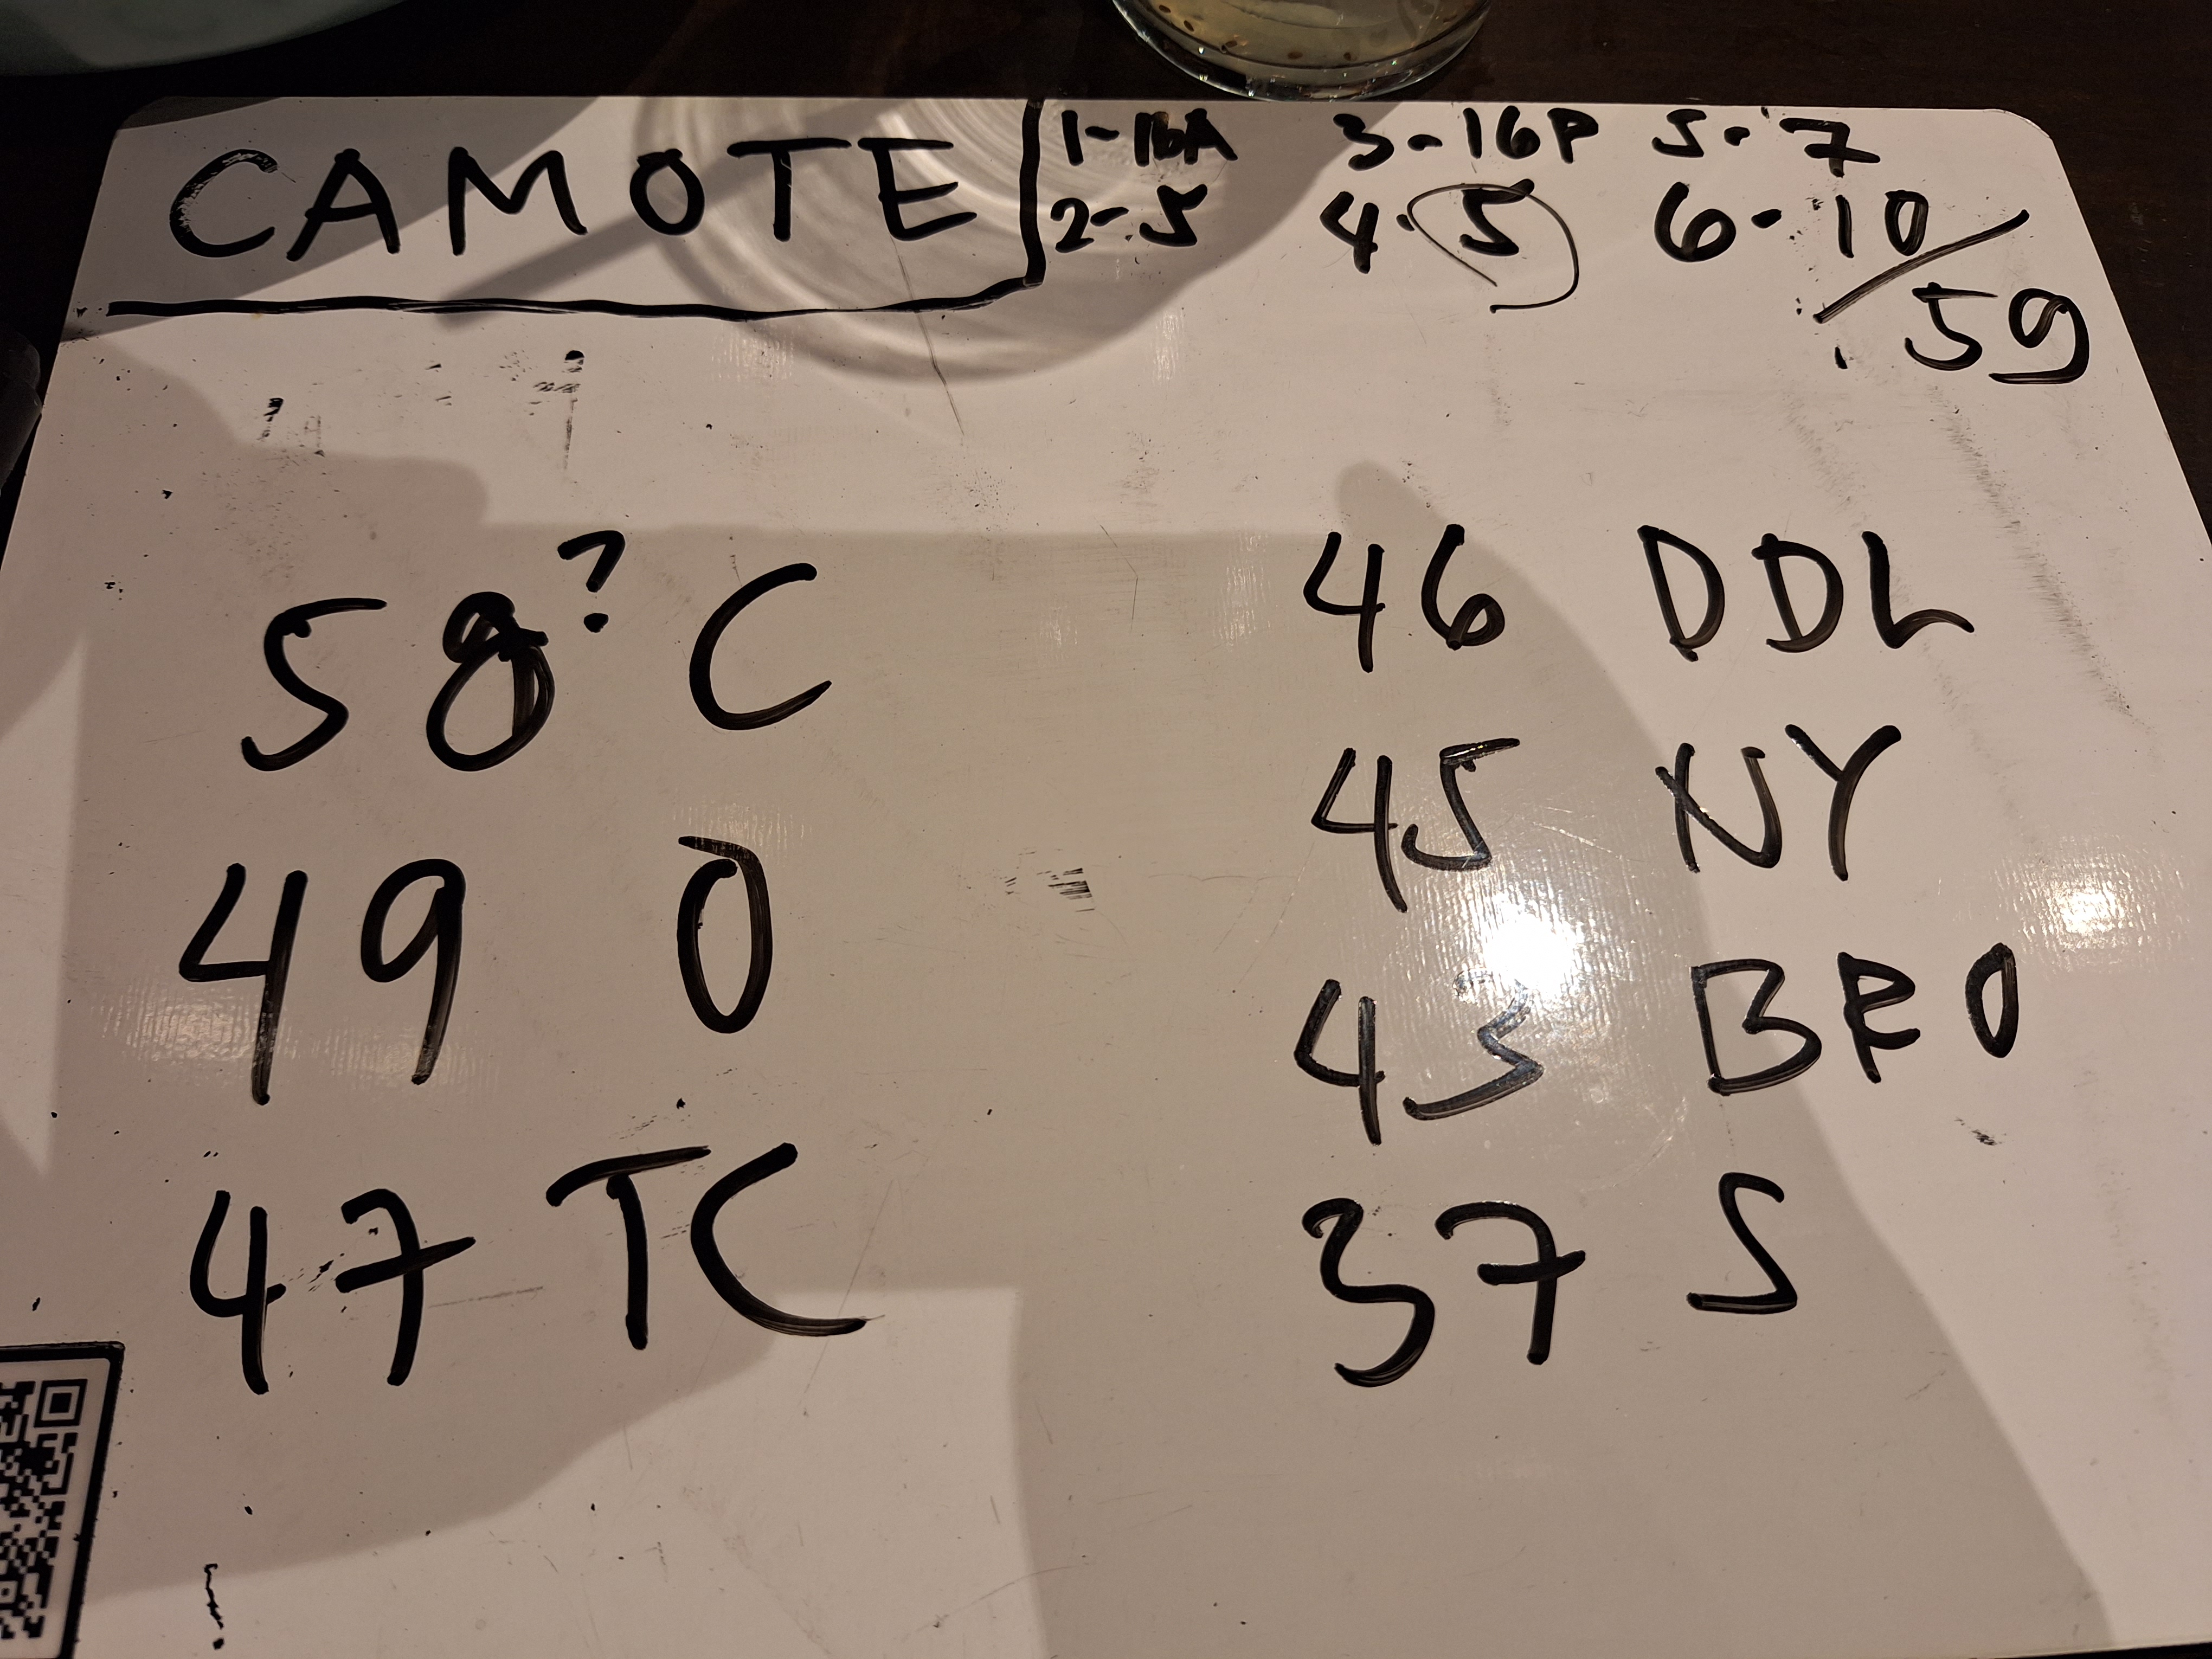 CAMOTE
1-16A 3-16P 5-7
2-5 4-5 6-10
/59
58? C
49 O
47 TC
46 DDL
45 NY
43 BRO
37 S